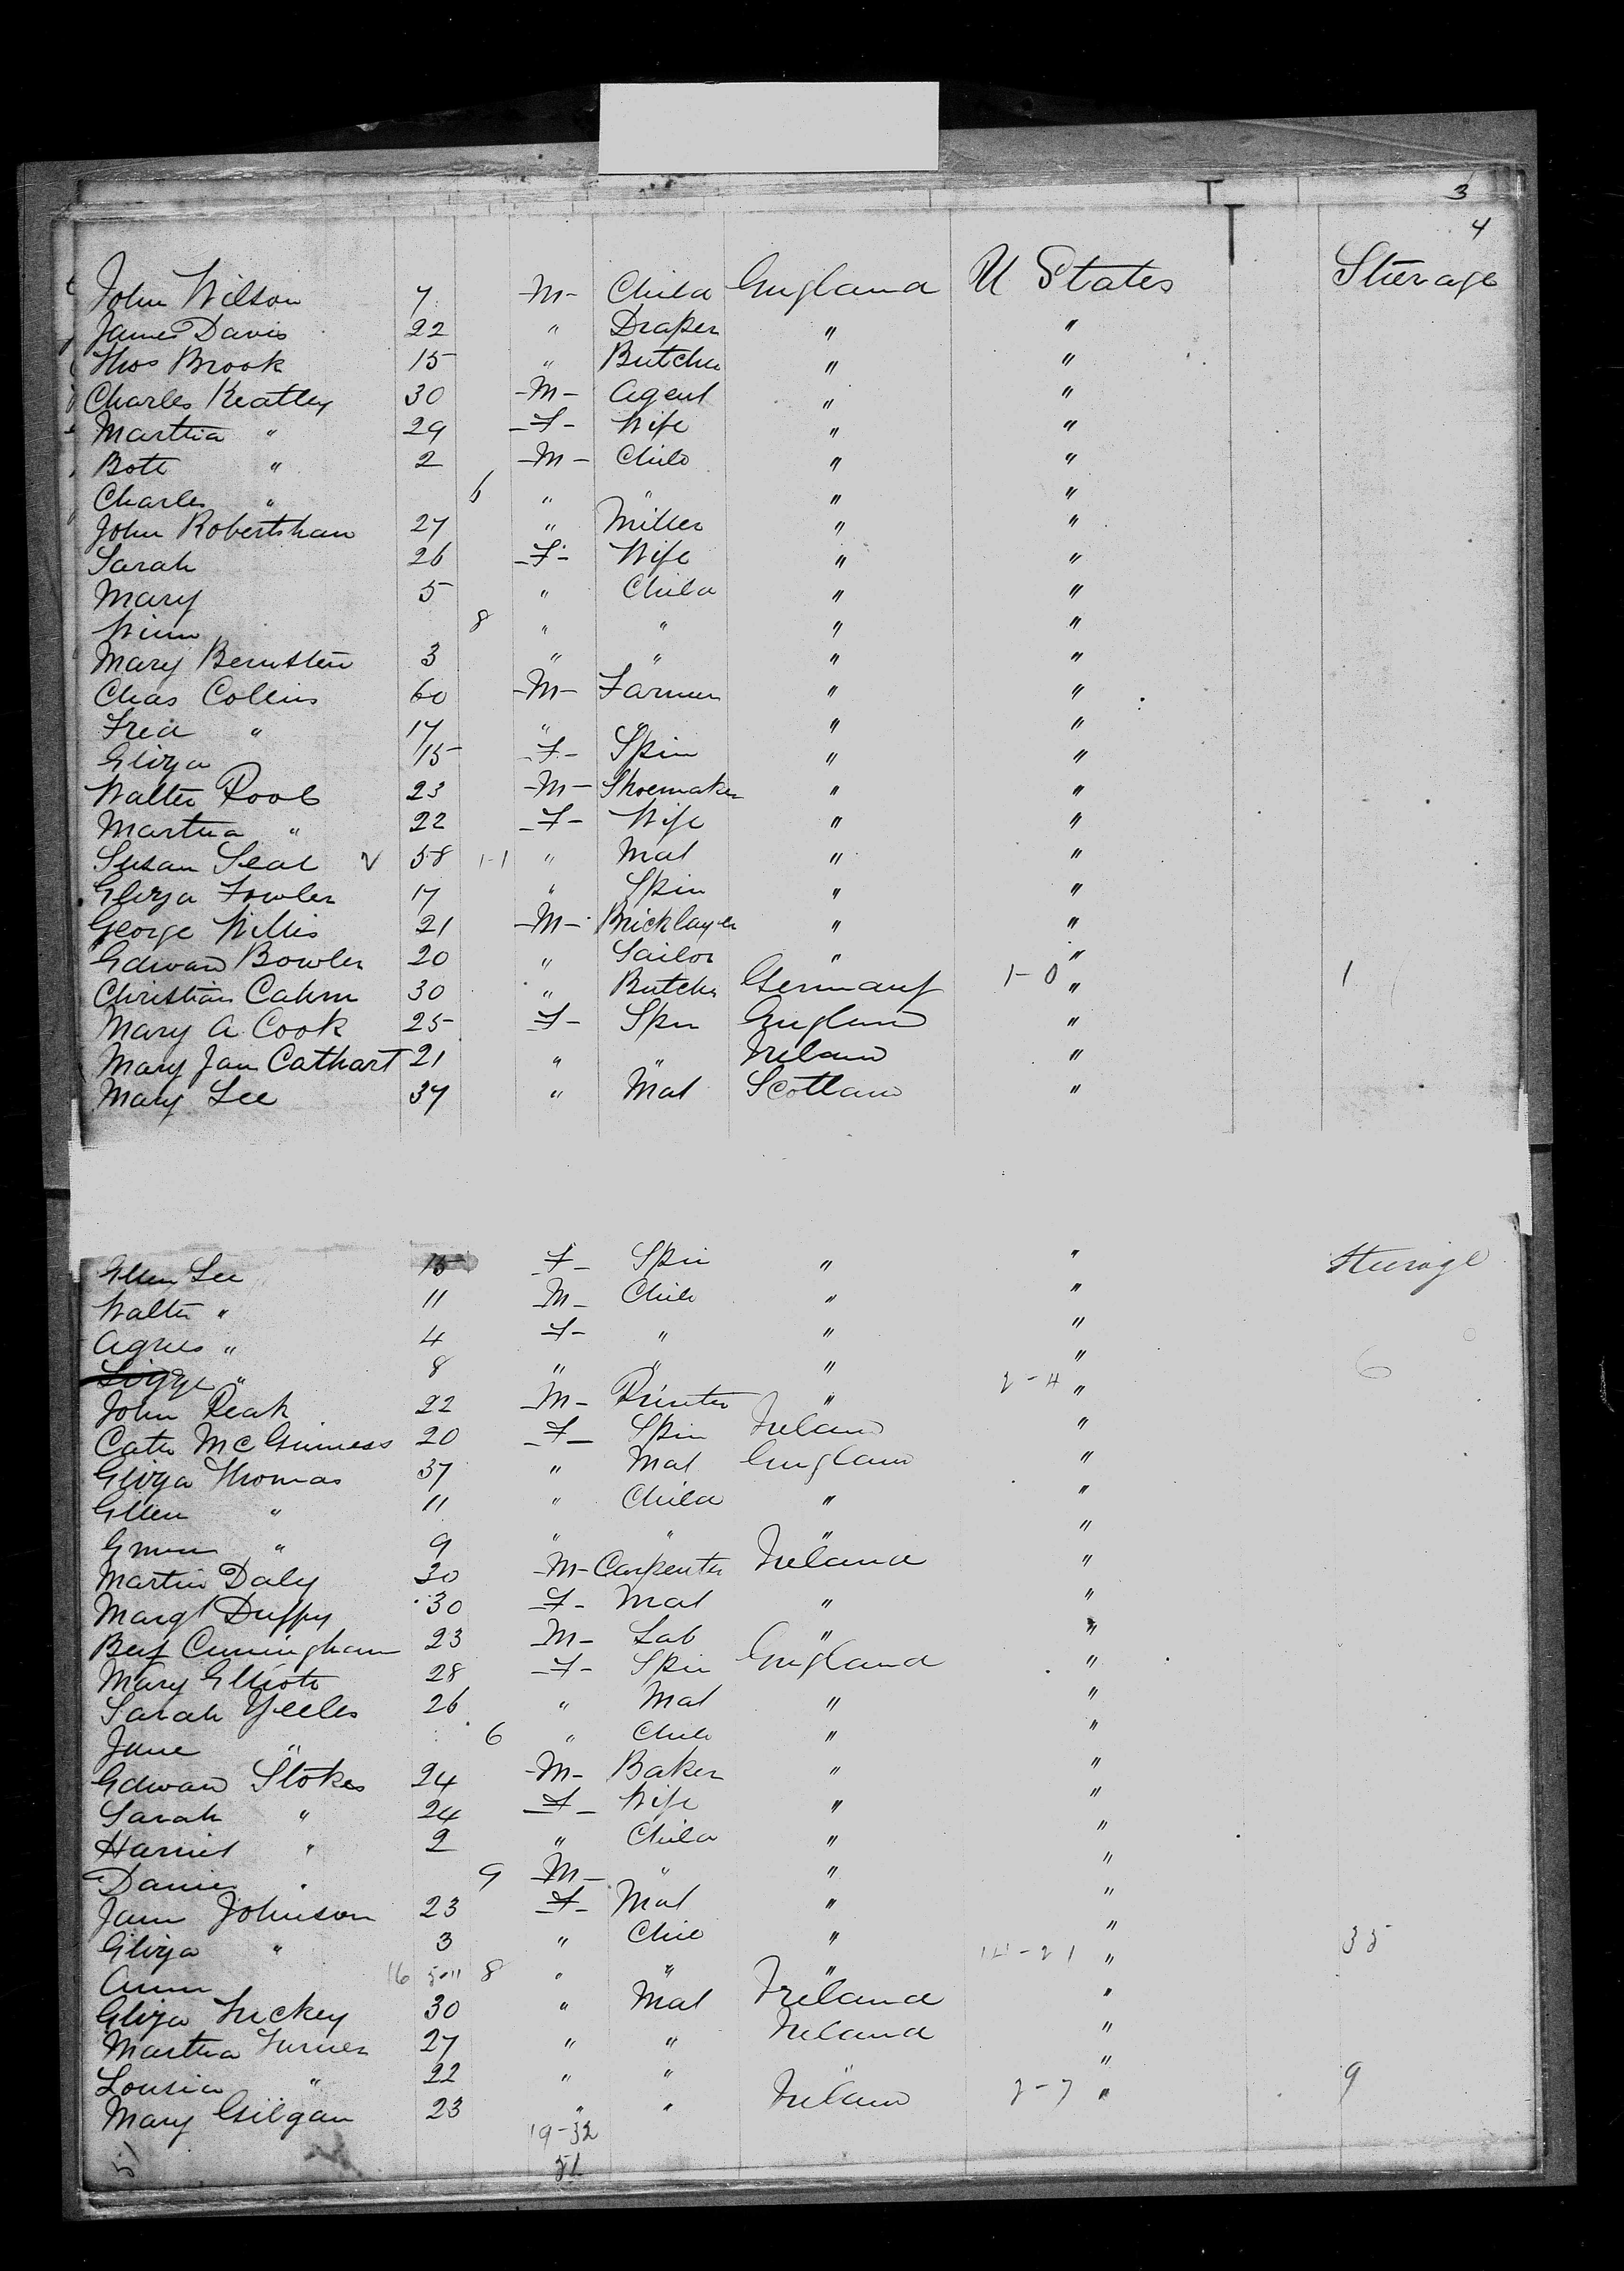 3
4
John Wilson 7 M- Child England U States Steerage
James Davis 22 " Draper " "
Thos Brook 15 " Butcher " "
Charles Keatley 30 -M- Agent " "
Martha " 29 -F- Wife " "
Bott " 2 -M- Child " "
Charles " 6 " " " "
John Robertshaw 27 " Miller " "
Sarah 26 -F- Wife " "
Mary 5 " Child " "
8 " " " "
Mary Bernstein 3 " " " "
Chas Collins 60 -M- Farmer " "
Fred " 17 " " " "
Eliza 15 -F- Spin " "
Walter 23 -M- Shoemaker " "
Martha " 22 -F- Wife " "
Susan Seal V 58 1-1 " Mat " "
Eliza Fowler 17 " Spin " "
George Willis 21 -M- Bricklayer " "
Edward Bowler 20 " Sailor " "
Christian Cahm 30 " Butcher Germany 1-0 " 1
Mary A Cook 25 F- Spin England "
Mary Jan Cathart 21 " " Ireland "
Mary Lee 37 " Mat Scotland "
Ellen Lee 15 F- Spin " " Steerage
Walter " 11 M- Child " "
Agnes " 4 F- " " "
8 " " " " 6
John Peak 22 M- Printer " 2-4 "
Cath McGuinness 20 -F- Spin Ireland "
Eliza Thomas 37 " Mat England "
Ellen " 11 " Child " "
Emma " 9 " " " "
Martin Daly 30 M- Carpenter Ireland "
Margt Duffy 30 F- Mat " "
Cuningham 23 M- Lab " "
Mary Elliott 28 -F- Spin England "
Sarah Yeeles 26 " Mat " "
Jane " 6 " Child " "
Edward Stokes 24 M- Baker " "
Sarah " 24 -F- Wife " "
Harriet " 2 " Child " "
9 M- " " "
Jane Johnson 23 F- Mat " "
Eliza " 3 " Chil " "
Ann 16 8 " " " 14-21 " 35
Eliza Luckey 30 " Mat Ireland "
Martha Turner 27 " " Ireland "
Louisa " 22 " " "
Mary Gilgan 23 " " Ireland 2-7 " 9
19-32
51